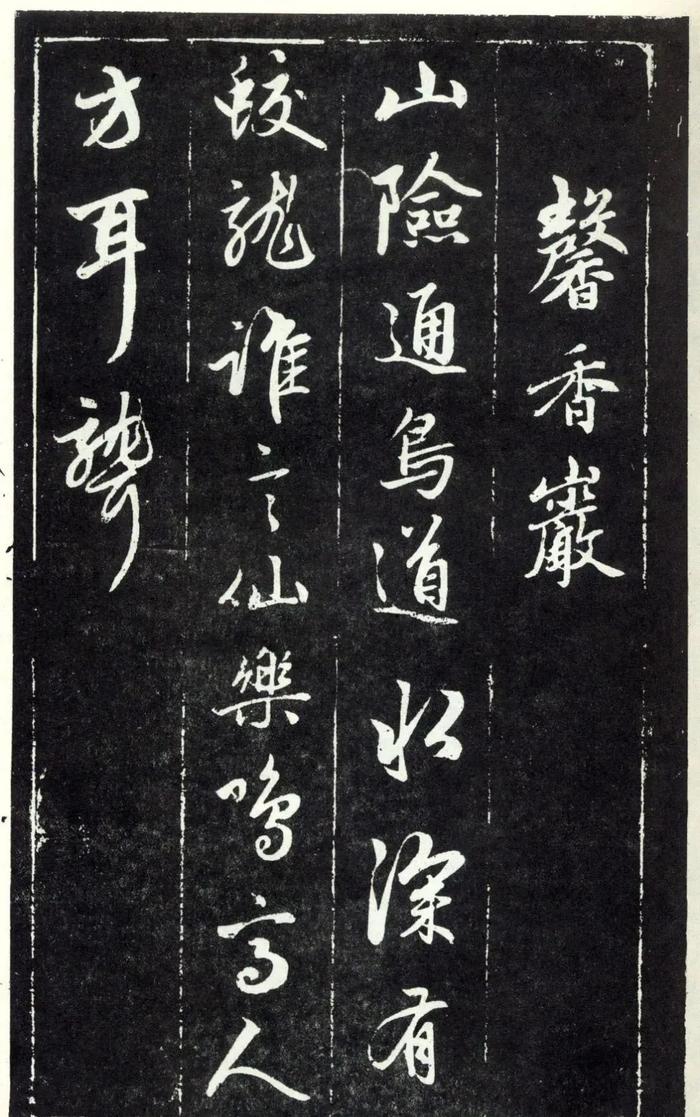 馨香巖
山險通鳥道松深有
蛟龍誰言仙樂鳴高人
方耳聾